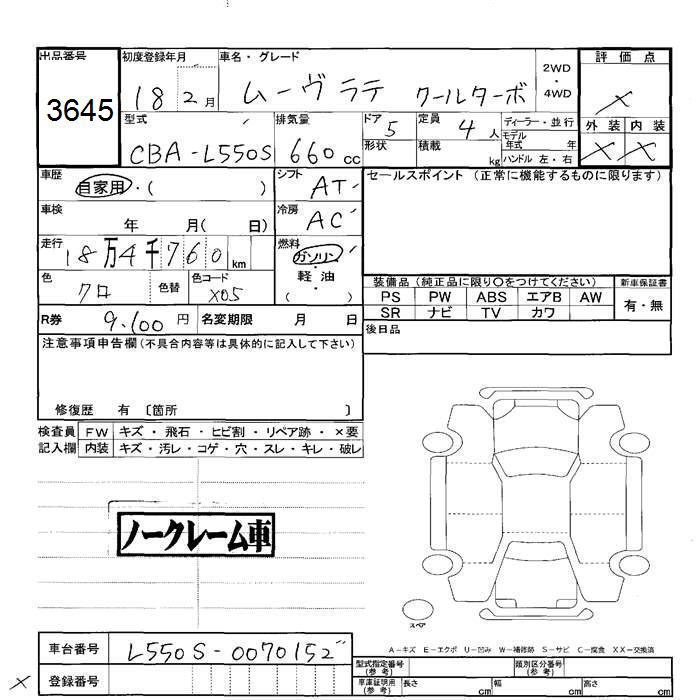 出品番号 初度登録年月 車名・グレード 2WD・4WD 評価点
3645 18 2月 ムーヴ ラテ クールターボ ×
型式 排気量 ドア 5 定員 4人 ディーラー・並行 外装 内装
CBA-L550S 660cc 形状 積載 kg モデル年式 年 × ×
ハンドル 左・右
車歴 自家用・( ) シフト AT セールスポイント (正常に機能するものに限ります)
車検 年 月( 日) 冷房 AC
走行 18万4千760km 燃料 ガソリン・軽油 ( )
色 クロ 色替 色コード X05 装備品 (純正品に限り○をつけてください) 新車保証書
PS PW ABS エアB AW 有・無
R券 9,100円 名変期限 月 日 SR ナビ TV カワ
注意事項申告欄(不具合内容等は具体的に記入して下さい) 後日品
修復歴 有 〔箇所 〕
検査員 FW キズ・飛石・ヒビ割・リペア跡・×要
記入欄 内装 キズ・汚レ・コゲ・穴・スレ・キレ・破レ
ノークレーム車
スペア
A-キズ E-エクボ U-凹み W-補修跡 S-サビ C-腐食 XX-交換済
車台番号 L550S-0070152 型式指定番号(参考) 類別区分番号(参考)
× 登録番号 車庫証明用(参考) 長さ cm 幅 cm 高さ cm